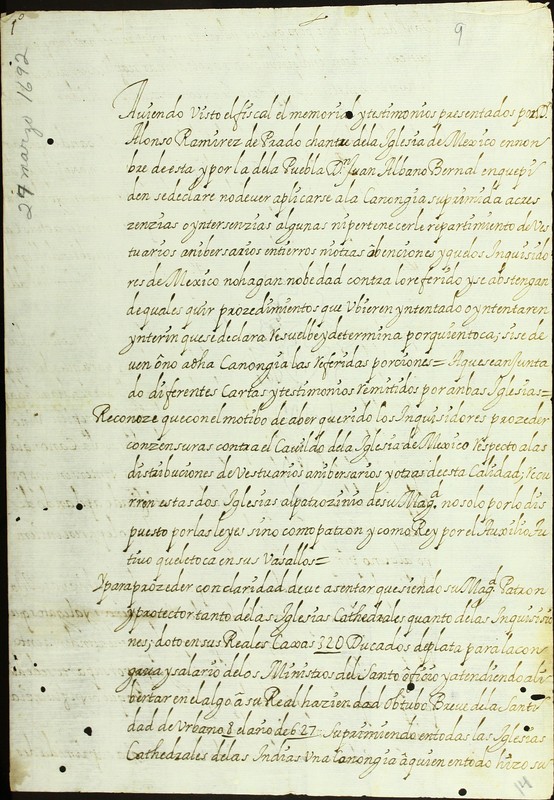 1º
9
27 marzo 1692
Auiendo Visto el fiscal el memorial y testimonios presentados por D.
Alonso Ramirez de Prado chantre dela Iglesia de Mexico en nom
bre de esta y por la dela Puebla Dn Juan Albano Bernal en que pi
den se declare no deuer aplicarse ala Canongia suprimida acres
zenzias o yntersenzias algunas ni pertenecerle repartimiento de Ves
tuarios anibersarios entierros ni otras obenciones y quelos Inquisido
res de Mexico no hagan nobedad contra lo referido y se abstengan
de quales quier prozedimientos que Vbieren yntentado o yntentaren
ynterin que se declara Resuelbe y determina por quien toca; si se de
uen o no a dha Canongia las Referidas porciones = A que se an junta
do diferentes Cartas y testimonios Remitidos por anbas Iglesias =
Reconoze que con el motibo de aber querido los Inquisidores prozeder
con zensuras contra el Cauildo dela Iglesia de Mexico Respecto a las
distribuciones de Vestuarios anibersarios y otras de esta Calidad; Recu
rren estas dos Iglesias al patrozinio de su Magd no solo por lo dis
puesto por las leyes sino como patron y como Rey por el Auxilio Tui
tiuo que le toca en sus Vasallos =
Y para prozeder con claridad deue asentar que siendo su Magd Patron
y protector tanto delas Iglesias Cathedrales quanto delas Inquisicio
nes; doto en sus Reales Caxas 320 Ducados de plata para la con
grua y salario delos Ministros del Santo officio y atendiendo a li
bertar en el algo a su Real hazienda Obtubo Breue dela Santi
dad de Urbano 8 el año de 627 = Suprimiendo en todas las Iglesias
Cathedrales de las Indias Una Canongia a quien en todo hizo su
14